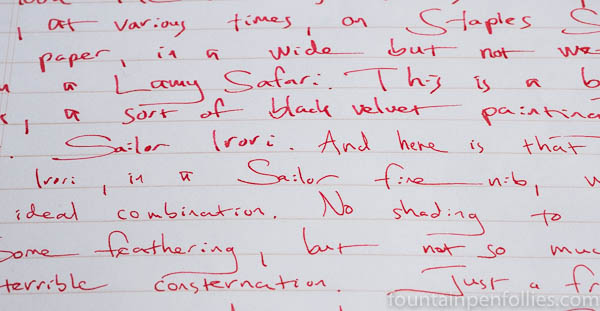 , at various times, on Staples S
paper, in a wide but not we
a Lamy Safari. This is a b
, a sort of black velvet painting
. Sailor Irori. And here is that
Irori, in a Sailor fine nib, w
ideal combination. No shading to
some feathering, but not so muc
terrible consternation. Just a fr
fountainpenfollies.com